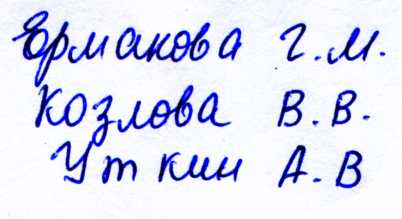 Ермакова Г.М.
Козлова В.В.
Уткин А.В